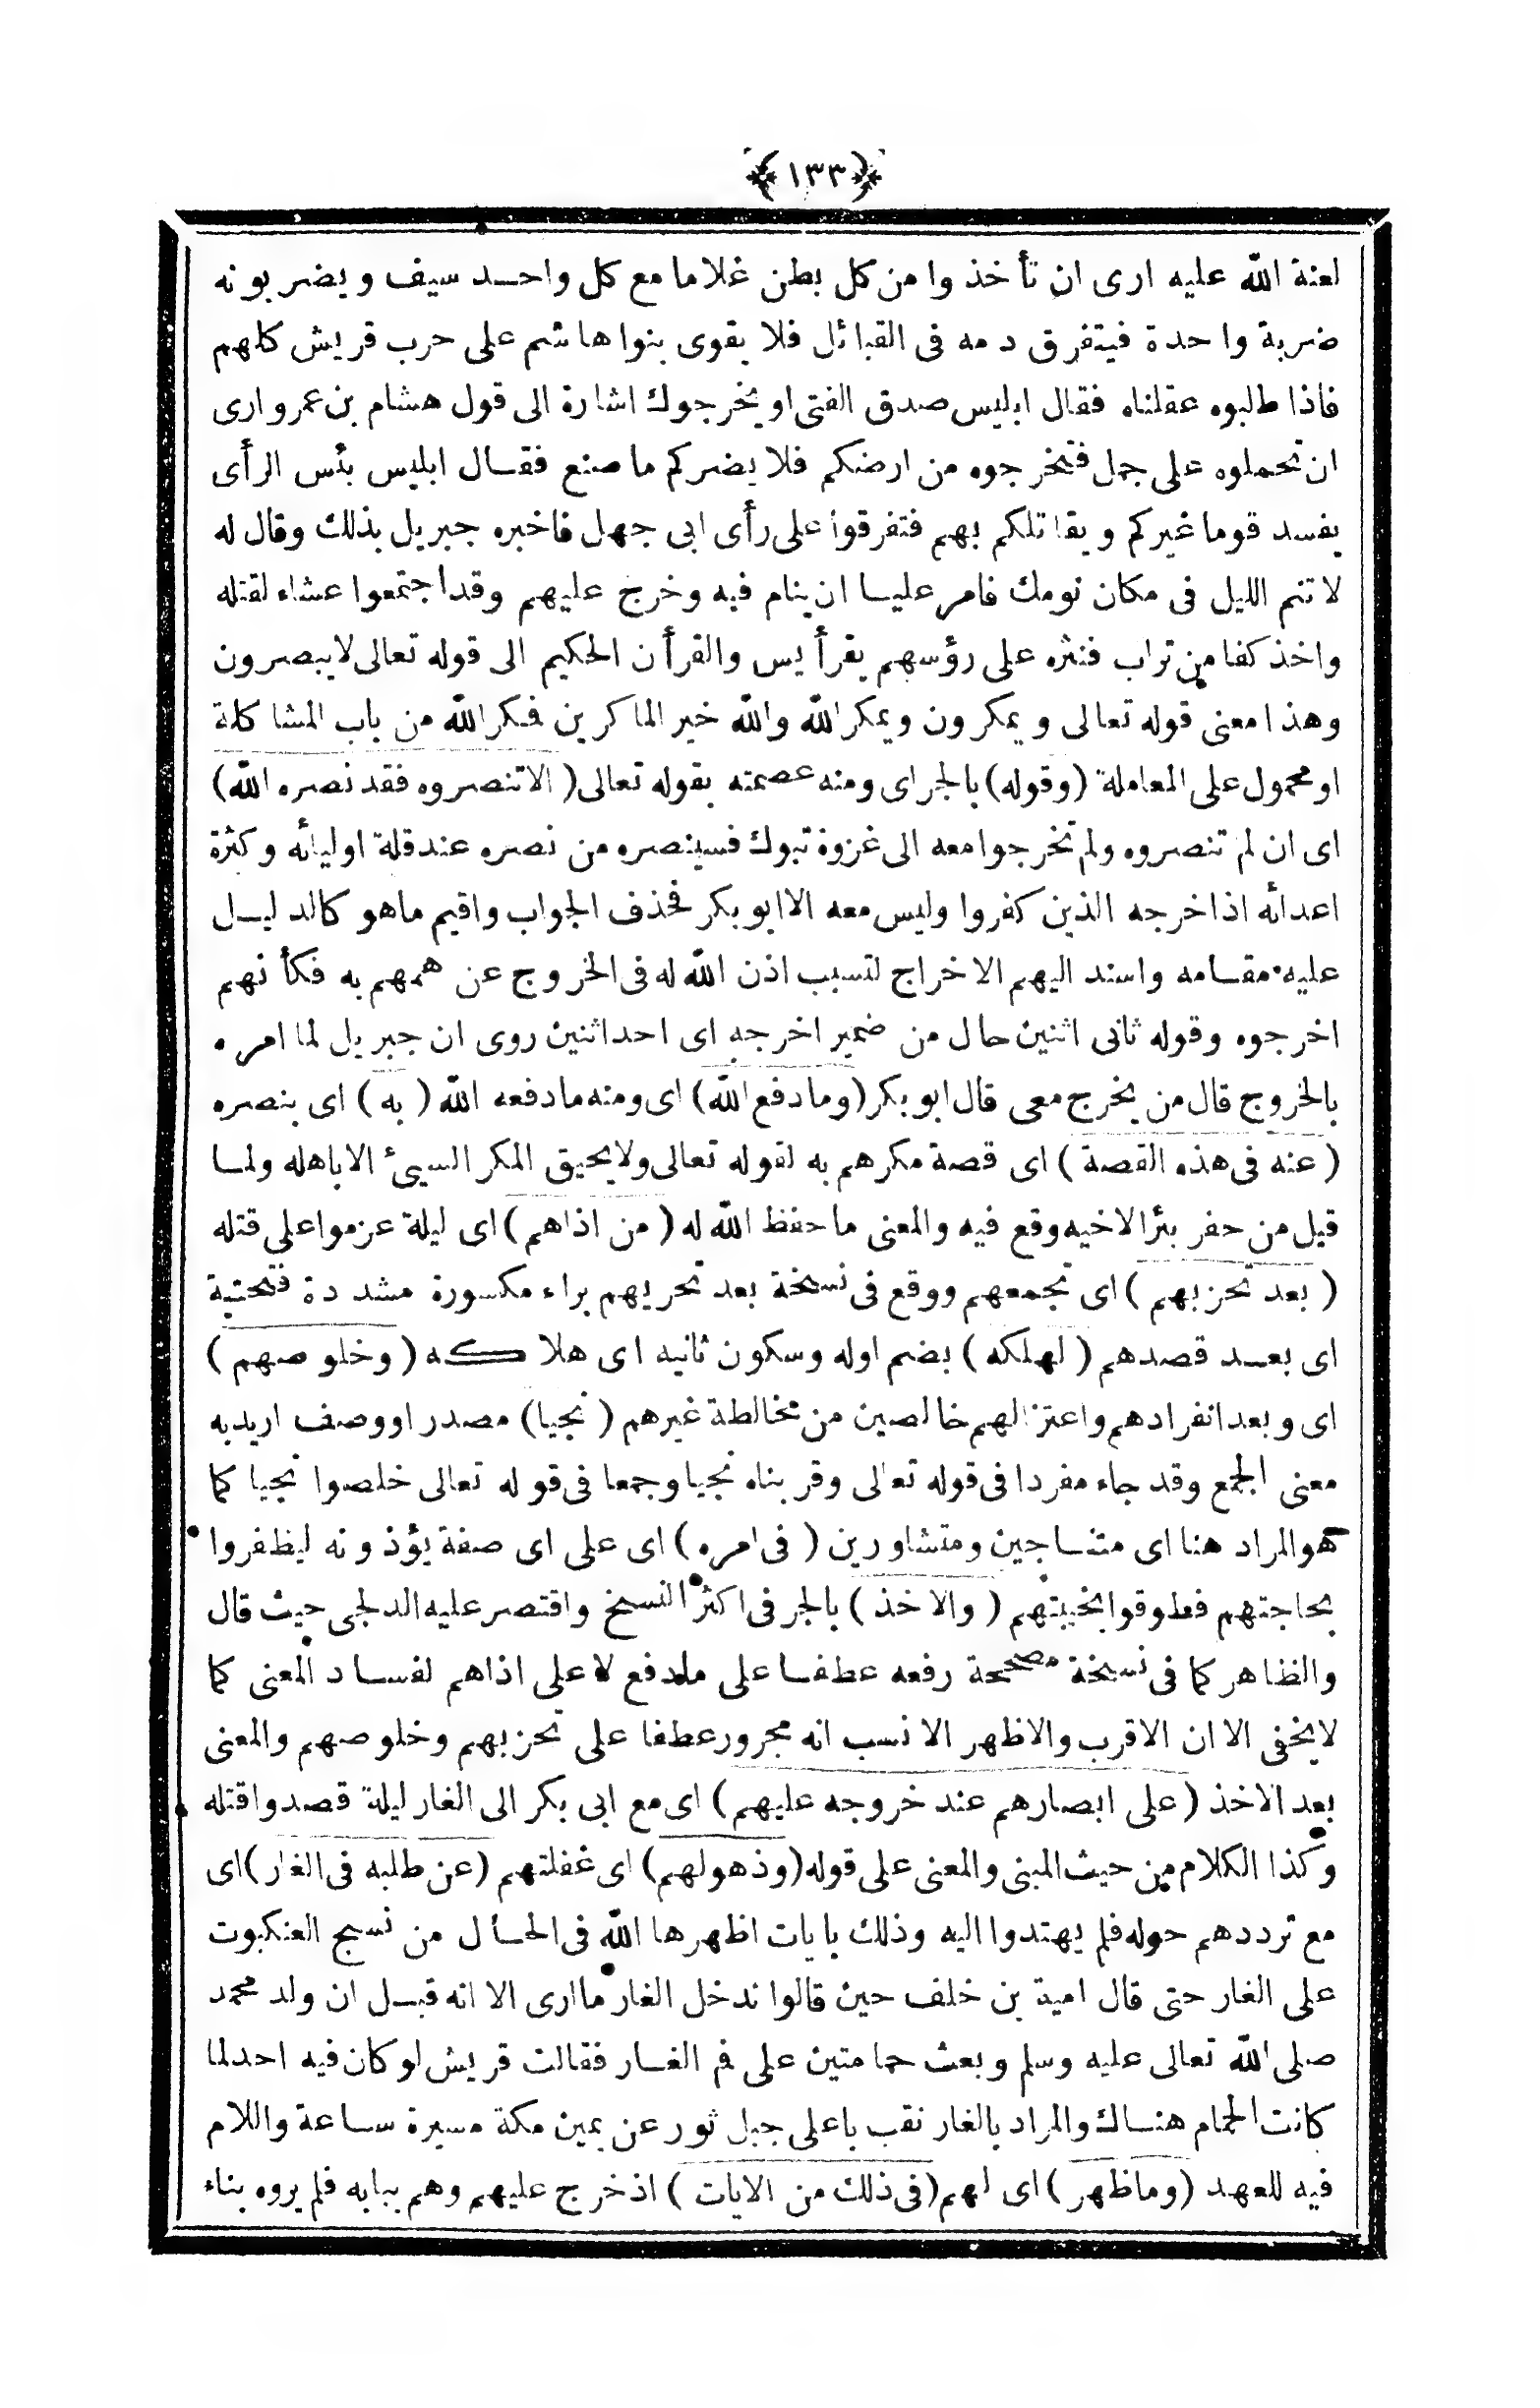 ﴿١٣٣﴾
لعنة الله عليه ارى ان تأخذوا من كل بطن غلاما مع كل واحد سيف ويضربونه
ضربة واحدة فيتفرق دمه فى القبائل فلا يقوى بنوا هاشم على حرب قريش كلهم
فاذا طلبوه عقلناه فقال ابليس صدق الفتى او يخرجوك اشارة الى قول هشام بن عمرو ارى
ان تحملوه على جمل فتخرجوه من ارضكم فلا يضركم ما صنع فقال ابليس بئس الرأى
يفسد قوما غيركم ويقاتلكم بهم فتفرقوا على رأى ابى جهل فاخبره جبريل بذلك وقال له
لا تنم الليل فى مكان نومك فامر عليا ان ينام فيه وخرج عليهم وقد اجتمعوا عشاء لقتله
واخذ كفا من تراب فنثره على رؤسهم يقرأ يس والقرأن الحكيم الى قوله تعالى لا يبصرون
وهذا معنى قوله تعالى ويمكرون ويمكر الله والله خير الماكرين فمكر الله من باب المشاكلة
او محمول على المعاملة (وقوله) بالجر اى ومنه عصمته بقوله تعالى (الا تنصروه فقد نصره الله)
اى ان لم تنصروه ولم تخرجوا معه الى غزوة تبوك فسينصره من نصره عند قلة اوليائه وكثرة
اعدائه اذ اخرجه الذين كفروا وليس معه الا ابو بكر فحذف الجواب واقيم ما هو كالدليل
عليه مقامه واسند اليهم الاخراج لتسبب اذن الله له فى الخروج عن همهم به فكأنهم
اخرجوه وقوله ثانى اثنين حال من ضمير اخرجه اى احد اثنين روى ان جبريل لما امره
بالخروج قال من يخرج معى قال ابو بكر (وما دفع الله) اى ومنه ما دفعه الله (به) اى بنصره
(عنه فى هذه القصة) اى قصة مكرهم به لقوله تعالى ولا يحيق المكر السيئ الا باهله ولما
قيل من حفر بئرا لاخيه وقع فيه والمعنى ما حفظ الله له (من اذاهم) اى ليلة عزموا على قتله
(بعد تحزبهم) اى تجمعهم ووقع فى نسخة بعد تحريهم براء مكسورة مشددة فتحتية
اى بعد قصدهم (لهلكه) بضم اوله وسكون ثانيه اى هلاكه (وخلوصهم)
اى وبعد انفرادهم واعتزالهم خالصين من مخالطة غيرهم (نجيا) مصدر او وصف اريد به
معنى الجمع وقد جاء مفردا فى قوله تعالى وقربناه نجيا وجمعا فى قوله تعالى خلصوا نجيا كما
هو المراد هنا اى متناجين ومتشاورين (فى امره) اى على اى صفة يؤذونه ليظفروا
بحاجتهم فعلوقوا بخيبتهم (والاخذ) بالجر فى اكثر النسخ واقتصر عليه الدلجى حيث قال
والظاهر كما فى نسخة مصححة رفعه عطفا على ما دفع لا على اذاهم لفساد المعنى كما
لا يخفى الا ان الاقرب والاظهر الانسب انه مجرور عطفا على تحزبهم وخلوصهم والمعنى
بعد الاخذ (على ابصارهم عند خروجه عليهم) اى مع ابى بكر الى الغار ليلة قصدوا قتله
وكذا الكلام من حيث المبنى والمعنى على قوله (وذهولهم) اى غفلتهم (عن طلبه فى الغار) اى
مع ترددهم حوله فلم يهتدوا اليه وذلك بايات اظهرها الله فى الحال من نسج العنكبوت
على الغار حتى قال امية بن خلف حين قالوا ندخل الغار ما ارى الا انه قبل ان ولد محمد
صلى الله تعالى عليه وسلم وبعث حمامتين على فم الغار فقالت قريش لو كان فيه احد لما
كانت الحمام هناك والمراد بالغار نقب باعلى جبل ثور عن يمين مكة مسيرة ساعة واللام
فيه للعهد (وما ظهر) اى لهم (فى ذلك من الايات) اذ خرج عليهم وهم ببابه فلم يروه بناء